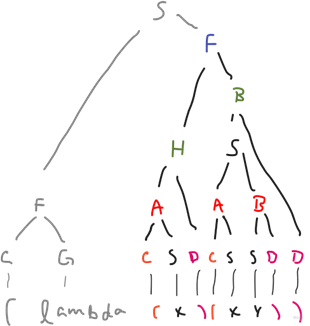 S
F
B
H S
F A A B
C G C S D C S S D D
( lambda ( x ) ( x y ) )